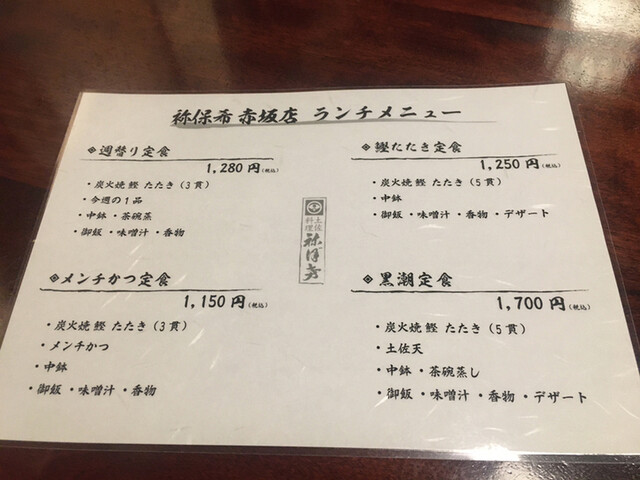 祢保希 赤坂店 ランチメニュー
週替り定食
1,280円(税込)
・炭火焼 鰹 たたき(3貫)
・今週の1品
・中鉢 ・茶碗蒸
・御飯 ・味噌汁 ・香物
鰹たたき定食
1,250円(税込)
・炭火焼 鰹 たたき(5貫)
・中鉢
・御飯 ・味噌汁 ・香物 ・デザート
土佐
料理
祢保希
メンチかつ定食
1,150円(税込)
・炭火焼 鰹 たたき(3貫)
・メンチかつ
・中鉢
・御飯 ・味噌汁 ・香物
黒潮定食
1,700円(税込)
・炭火焼 鰹 たたき(5貫)
・土佐天
・中鉢 ・茶碗蒸し
・御飯 ・味噌汁 ・香物 ・デザート